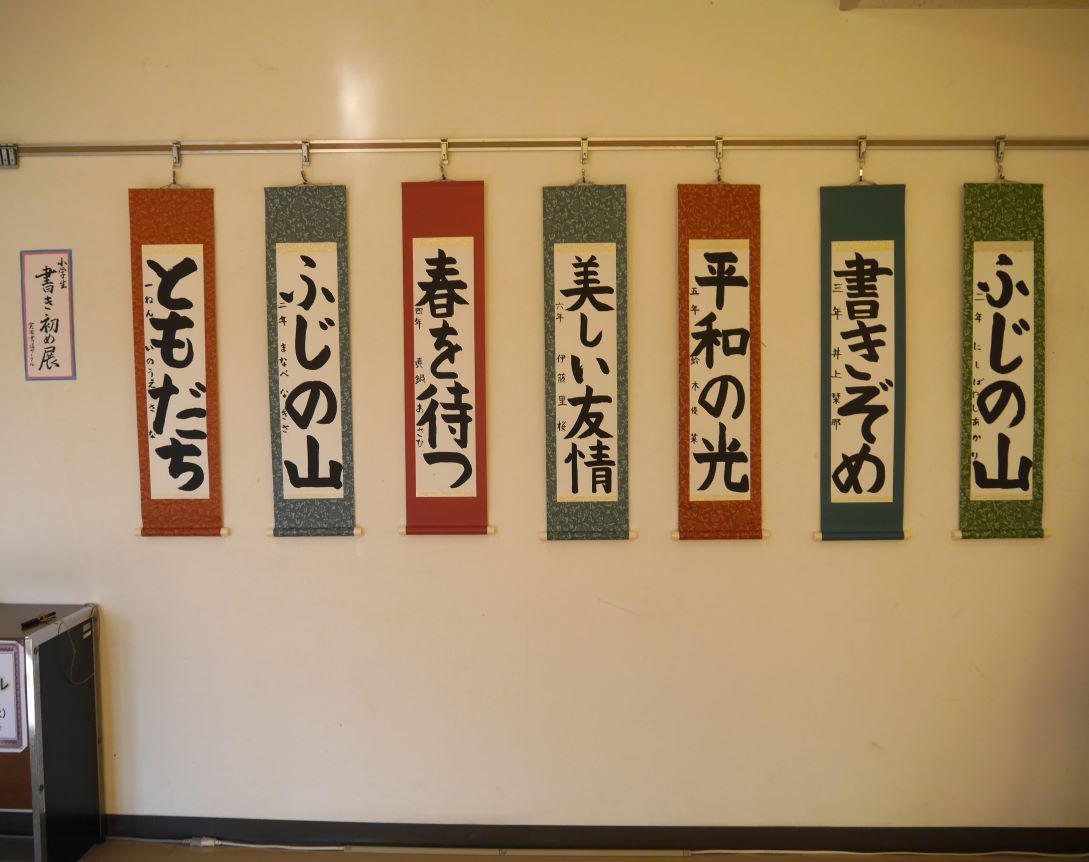 小学生
書き初め展
ともだち
一ねん いのうえ さな
ふじの山
二年 まなべ なぎさ
春を待つ
四年 真鍋 あさひ
美しい友情
六年 伊藤里桜
平和の光
五年 鈴木優菜
書きぞめ
三年 井上栞那
ふじの山
二年 にしばやしあかり